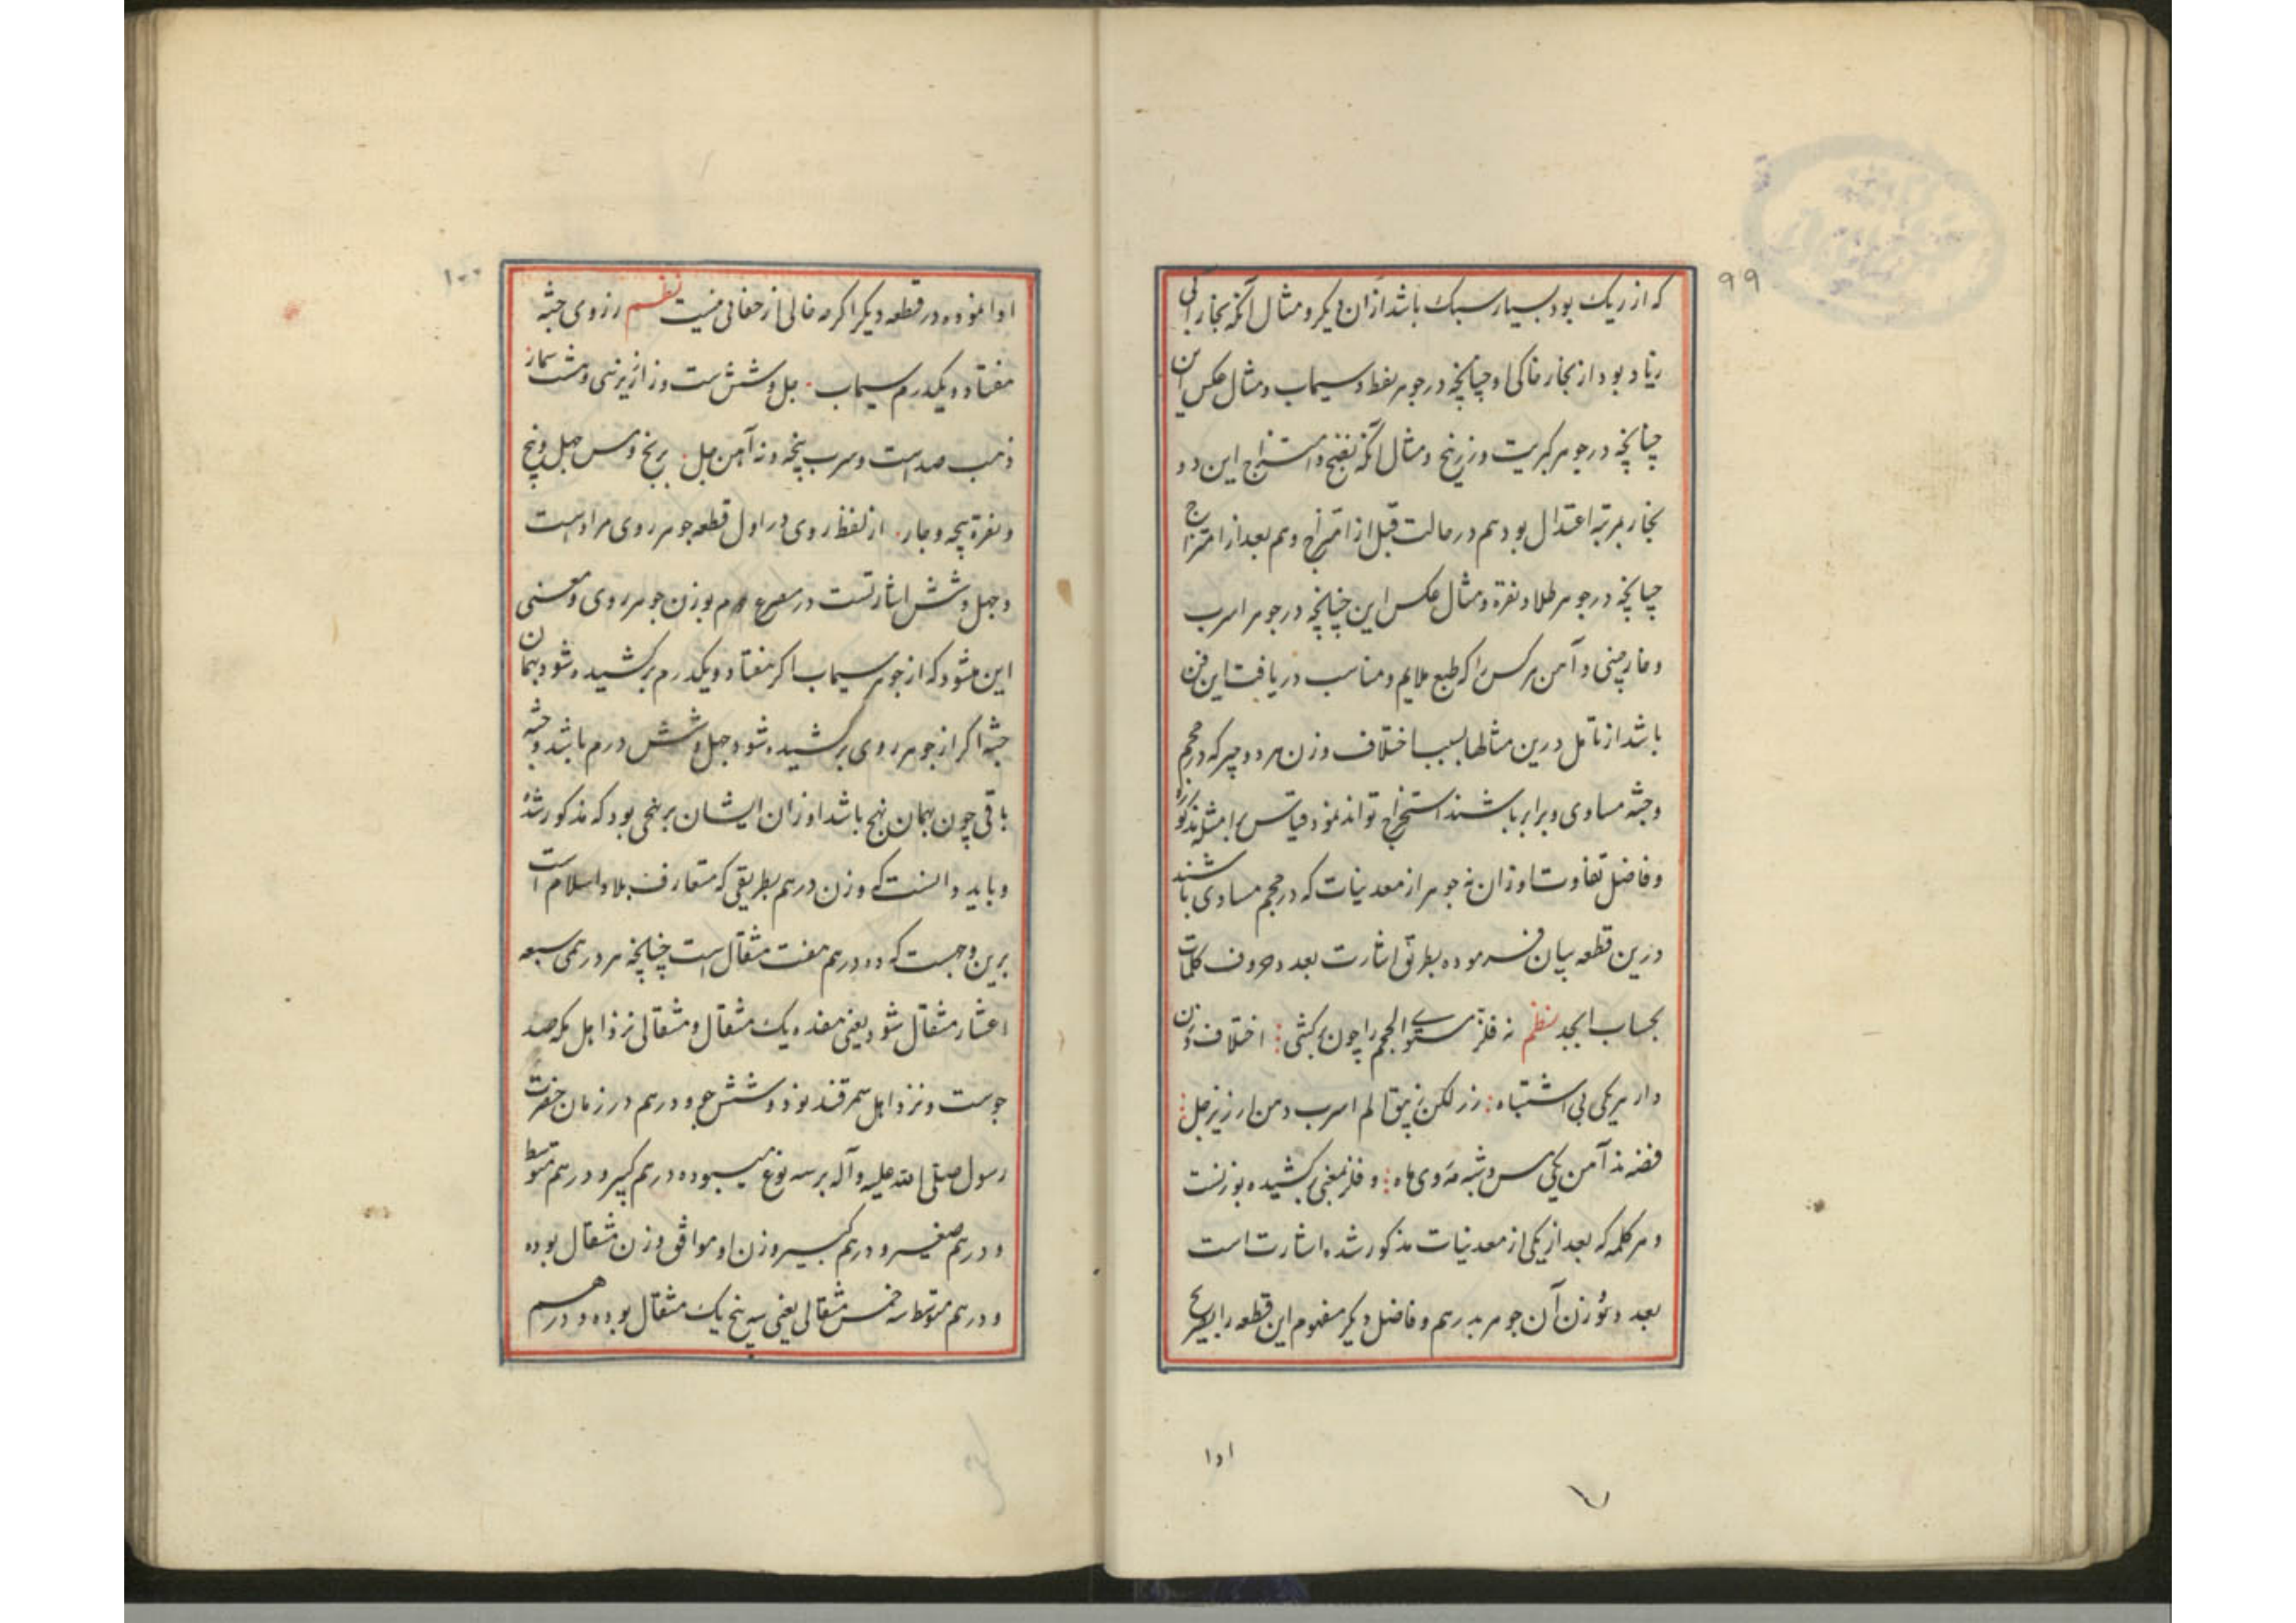 ۹۹
که از ریک بود بسیار سبک باشد ازان دیگر و مثال آنکه بخار آبی
زیاد بود از بخار خاکی او چنانچه در جوهر نفط و سیماب و مثال عکس این
چنانچه در جوهر کبریت و زرنیخ و مثال آنکه نضج و امتزاج این دو
بخار بمرتبه اعتدال بود هم در حالت قبل از امتزاج و هم بعد از امتزاج
چنانچه در جوهر طلا و نقره و مثال عکس این چنانچه در جوهر اسرب
و خارچینی و آهن هر کس را که طبع ملایم و مناسب دریافت این فن
باشد از تامل درین مثالها بسبب اختلاف وزن هر دو چیز که در حجم
و جثه مساوی و برابر باشند استخراج تواند نمود قیاس بامثله مذکوره
و فاضل تفاوت اوزان نه جوهر از معدنیات که در حجم مساوی باشند
درین قطعه بیان فرموده بطریق اشارت بعدد حروف کلمات
بحساب ابجد نظم نه فلز مستوی الحجم را چون برکشی اختلاف وزن
دارد هر یکی بی اشتباه زر لکن زیبق الم اسرب دهن ارزیز حل
فضه ند آهن یکی مس و شبه مه روی ماه و فلز بمعنی برکشیده بوزنست
و هر کلمه که بعد از یکی از معدنیات مذکور شده اشارت است
بعدد وزن آن جوهر بدرهم و فاضل دیگر مفهوم این قطعه را بصریح
ادا
۱۰۰
ادا نموده در قطعه دیگر اگرچه خالی از حفائی نیست نظم ز روی جثه
هفتاد و یکدرم سیماب چل و شش ست و ز ارزیز سی و هشت شمار
ذهب صد است و سرب پنجه و نه آهن چل برنج و مس چهل و پنج
و نقره پنجه و چار از لفظ روی در اول قطعه جوهر روی مراد است
و چهل و شش اشارتست در مصرع دوم بوزن جوهر روی و معنی
این میشود که از جوهر سیماب اگر هفتاد و یکدرم برکشیده شود و بهمان
جثه اگر از جوهر روی برکشیده شود چهل و شش درم باشد و جثه
باقی چون بهمان نهج باشد اوزان ایشان برنهجی بود که مذکور شد
و باید دانست که وزن درهم بطریقی که متعارف بلاد اسلام است
برین وجهست که ده درهم هفت مثقال است چنانچه هر درهمی سبعه
اعشار مثقال شود یعنی هفده یک مثقال و مثقالی نزد اهل مکه صد
جوست و نزد اهل سمرقند نود و شش جو و درهم در زمان حضرت
رسول صلی الله علیه و آله بر سه نوع میبوده درهم کبیر و درهم متوسط
و درهم صغیر و درهم کبیر وزن او موافق وزن مثقال بوده
و درهم متوسط سه خمس مثقالی یعنی سه پنج یک مثقال بوده و درهم